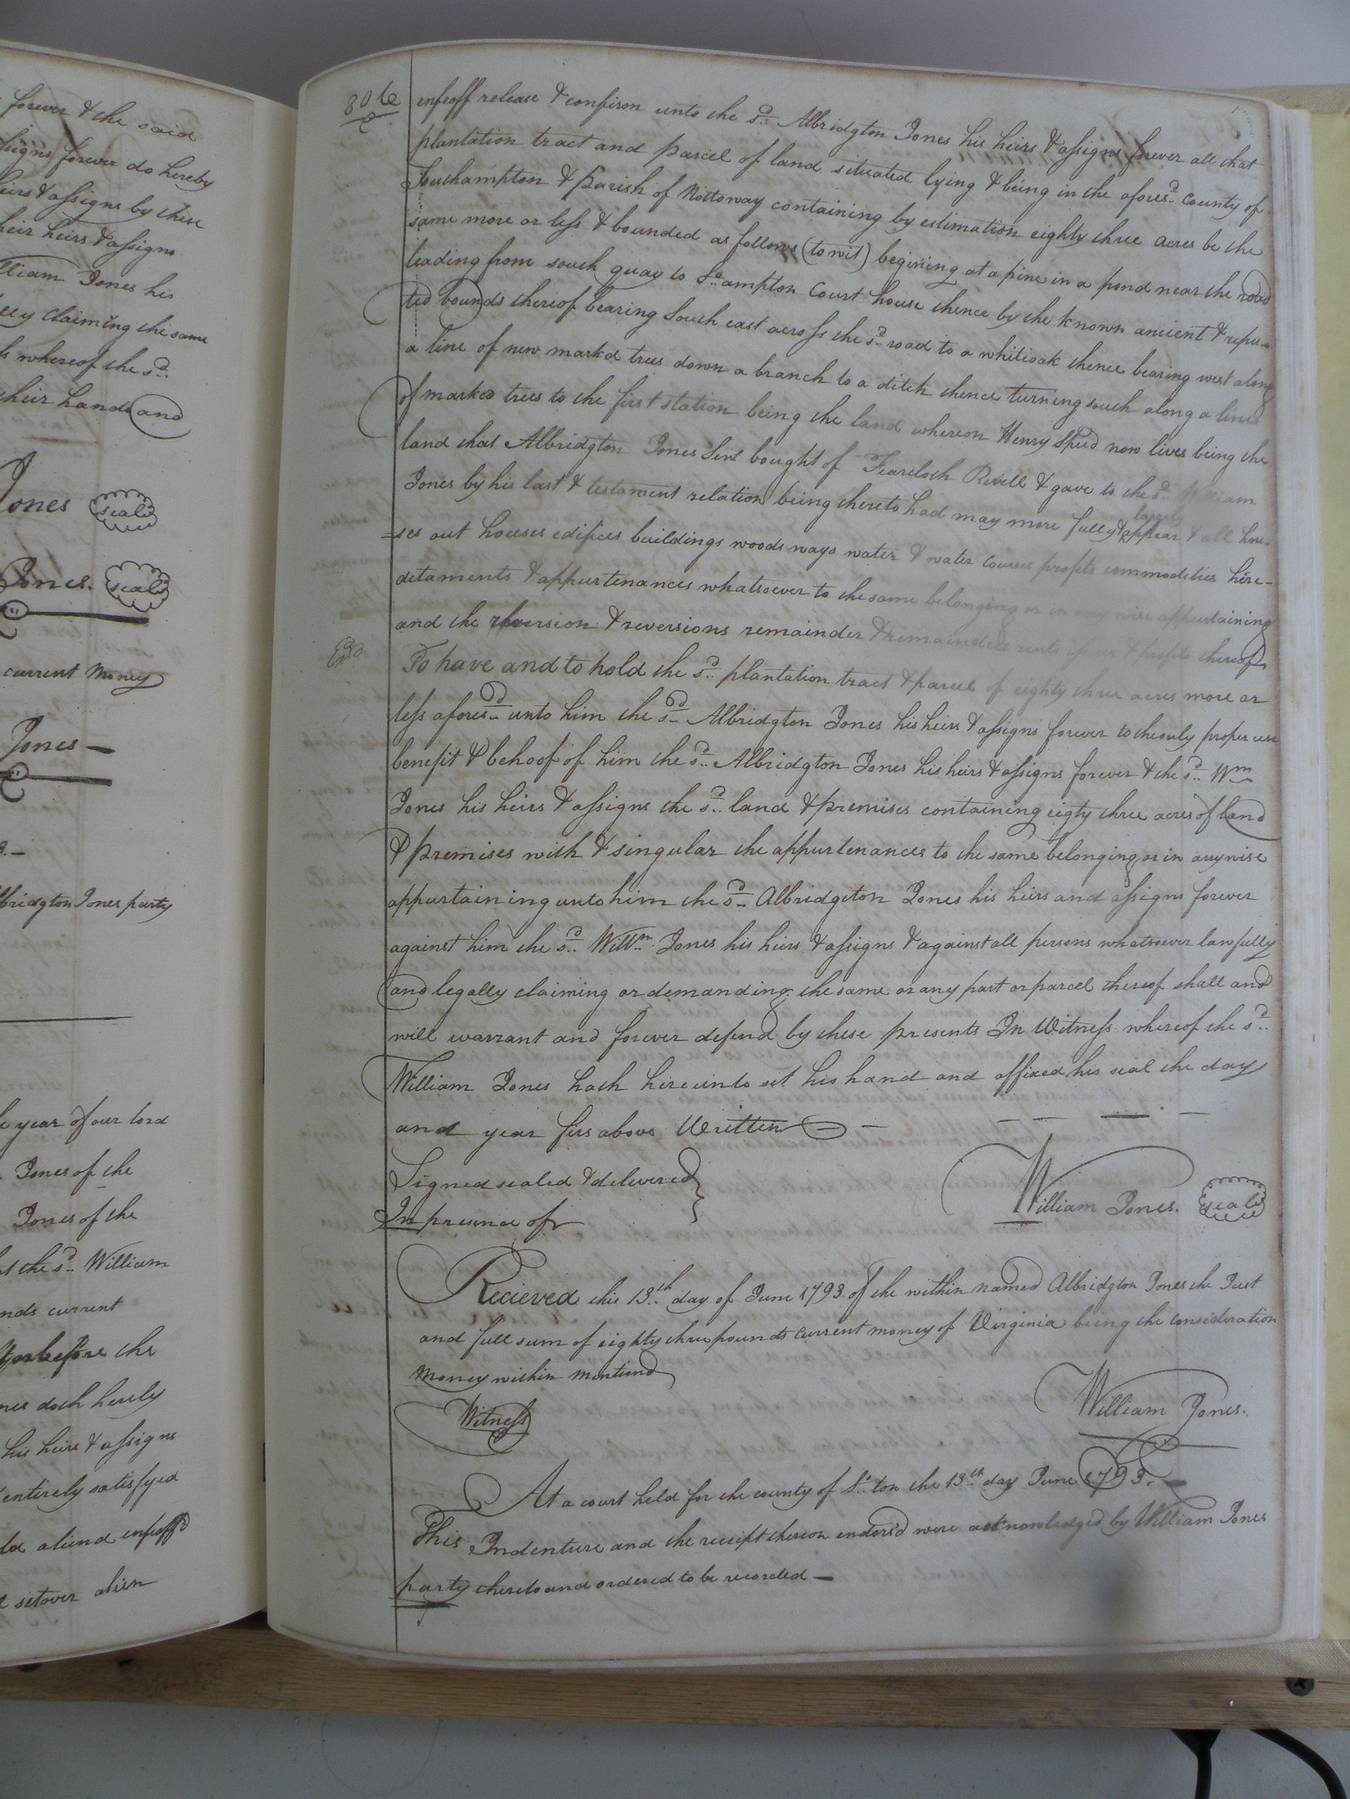 forever & the said
assigns forever do hereby
heirs & assigns by these
their heirs & assigns
William Jones his
claiming the same
whereof the sd.
their hands and
Jones seal
Jones. seal
current Money
Jones
Albridgton Jones party
year of our lord
Jones of the
Jones of the
the sd. William
current
before the
doth hereby
his heirs & assigns
entirely satisfyed
aliend enfeoff'd
setover alien
306
enfeoff release & confirm unto the sd. Albridgton Jones his heirs & assigns forever all that
plantation tract and parcel of land situated lying & being in the aforesd. County of
Southampton & Parish of Nottoway containing by estimation eighty three acres be the
same more or less & bounded as follows (to wit) begining at a pine in a pond near the road
leading from south quay to So.ampton Court house thence by the known ancient & repu-
ted bounds thereof bearing South east across the sd. road to a whiteoak thence bearing west along
a line of new markd trees down a branch to a ditch thence turning south along a line
of marked trees to the first station being the land whereon Henry Speed now lives being the
land that Albridgton Jones Senr bought of Revell & gave to the sd. William
Jones by his last & testament relation being thereto had may more fully & largely appear & all hou-
=ses out houses edifices buildings woods ways water & water courses profits commodities here-
ditaments & appurtenances whatsoever to the same belonging or in any wise appurtaining
and the reversion & reversions remainder & remainders rents issues & profits thereof
To have and to hold the sd. plantation tract & parcel of eighty three acres more or
less aforesd. unto him the sd. Albridgton Jones his heirs & assigns forever to the only proper use
benefit & behoof of him the sd. Albridgton Jones his heirs & assigns forever & the sd. Wm
Jones his heirs & assigns the sd. land & premises containing eigty three acres of land
& premises with & singular the appurtenances to the same belonging or in anywise
appurtaining unto him the sd. Albridgton Jones his heirs and assigns forever
against him the sd. Willm. Jones his heirs & assigns & against all persons whatsoever lawfully
and legally claiming or demanding the same or any part or parcel thereof shall and
will warrant and forever defend by these presents In Witness whereof the sd.
William Jones hath hereunto set his hand and affixed his seal the day
and year firs above Written
Signed sealed & delivered
In presence of
William Jones. seal
Recieved this 13.th day of June 1793 of the within named Albridgton Jones the Just
and full sum of eighty three pounds current money of Virginia being the consideration
money within mentiond
Witness
William Jones.
At a court held for the county of So.ton the 13.th day June 1793.
This Indenture and the receipt thereon endors'd were acknowledged by William Jones
party thereto and ordered to be recorded